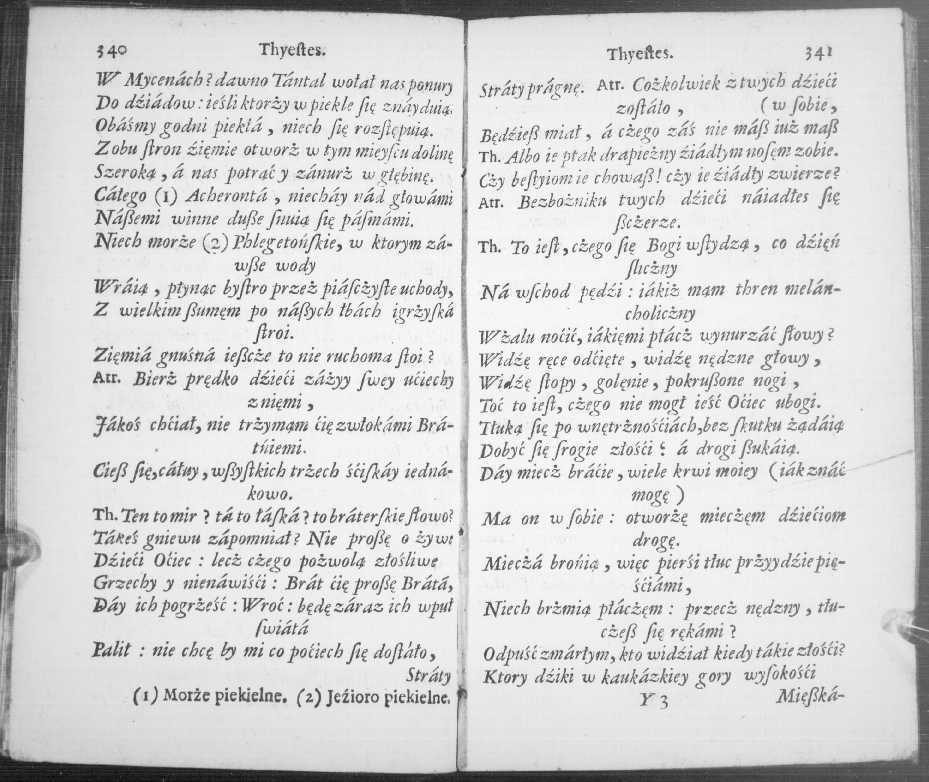 340 Thyeſtes.
W Mycenách? dawno Tántal wołał nas ponury
Do dźiádow: ieśli ktorży w piekle ſię znáyduią.
Obáśmy godni piekłá, niech ſię rozſtępuią.
Z obu ſtron źięmie otworż w tym mieyſcu dolinę
Szeroką, á nas potráć y zánurż w głębinę.
Cáłego (1) Acherontá, niecháy nád głowámi
Náßemi winne duße ſnuią ſię páſmámi.
Niech morże (2) Phlegetońſkie, w ktorym zá-
wße wody
Wráią, płynąc byſtro przeż piáſcżyſte uchody,
Z wielkim ßumęm po náßych łbách igrżyſká
ſtroi.
Zięmiá gnuśna ießcże to nie ruchoma ſtoi?
Atr. Bierż prędko dźieći záżyy ſwey ućiechy
z nięmi,
Jákoś chćiał, nie trżymąm ćię zwłokámi Brá-
túiemi.
Cieß ſię, cáłuy, wßyſtkich trzech śćiſkáy iedná-
kowo.
Th. Ten to mir? tá to łáſká? to bráterſkie ſłowo?
Tákeś gniewu zápomniał? Nie proßę o żywe
Dźieći Oćiec: lecż cżego pożwolą złośliwe
Grzechy y nienáwiśći: Brát ćię proßę Brátá,
Dáy ich pogrżeść: Wroć: będę záraz ich wpuł
ſwiátá
Palił: nie chcę by mi co poćiech ſię doſtáło,
Stráty
(1) Morże piekielne. (2) Jeźioro piekielne.
Thyeſtes. 341
Stráty prágnę. Atr. Cożkolwiek z twych dźieći
zoſtáło, (w ſobie,
Będźieß miał, á cżego záś nie máß iuż maß
Th. Albo ie ptak drapieżny źiádłym noſęm zobie.
Cży beſtyiom ie chowaß! cży ie źiádły zwierze?
Atr. Bezbożniku twych dźieći náiadłes ſię
ßcżerze.
Th. To ieſt, cżego ſię Bogi wſtydzą, co dźięń
ſlicżny
Ná wſchod pędźi: iákiż mąm thren melán-
cholicżny
W żalu noćić, iákięmi płácż wynurzáć ſłowy?
Widźę ręce odćięte, widźę nędzne głowy,
Widźę ſtopy, golęnie, pokrußone nogi,
Toć to ieſt, cżego nie mogł ieść Oćiec ubogi.
Tłuką ſię po wnętrżnośćiách, bez ſkutku żądáią
Dobyć ſię ſrogie złośći: á drogi ßukáią.
Dáy miecż bráćie, wiele krwi moiey (iák znáć
mogę)
Ma on w ſobie: otworżę miecżęm dźiećiom
drogę.
Miecżá bronią, więc pierśi tłuc prżyydźie pię-
śćiámi,
Niech brżmią płácżęm: przecż nędzny, tłu-
cżeß ſię rękámi?
Odpuść zmárłym, kto widźiał kiedy tákie złośći?
Ktory dźiki w kaukázkiey gory wyſokośći
Y 3 Mięßká-